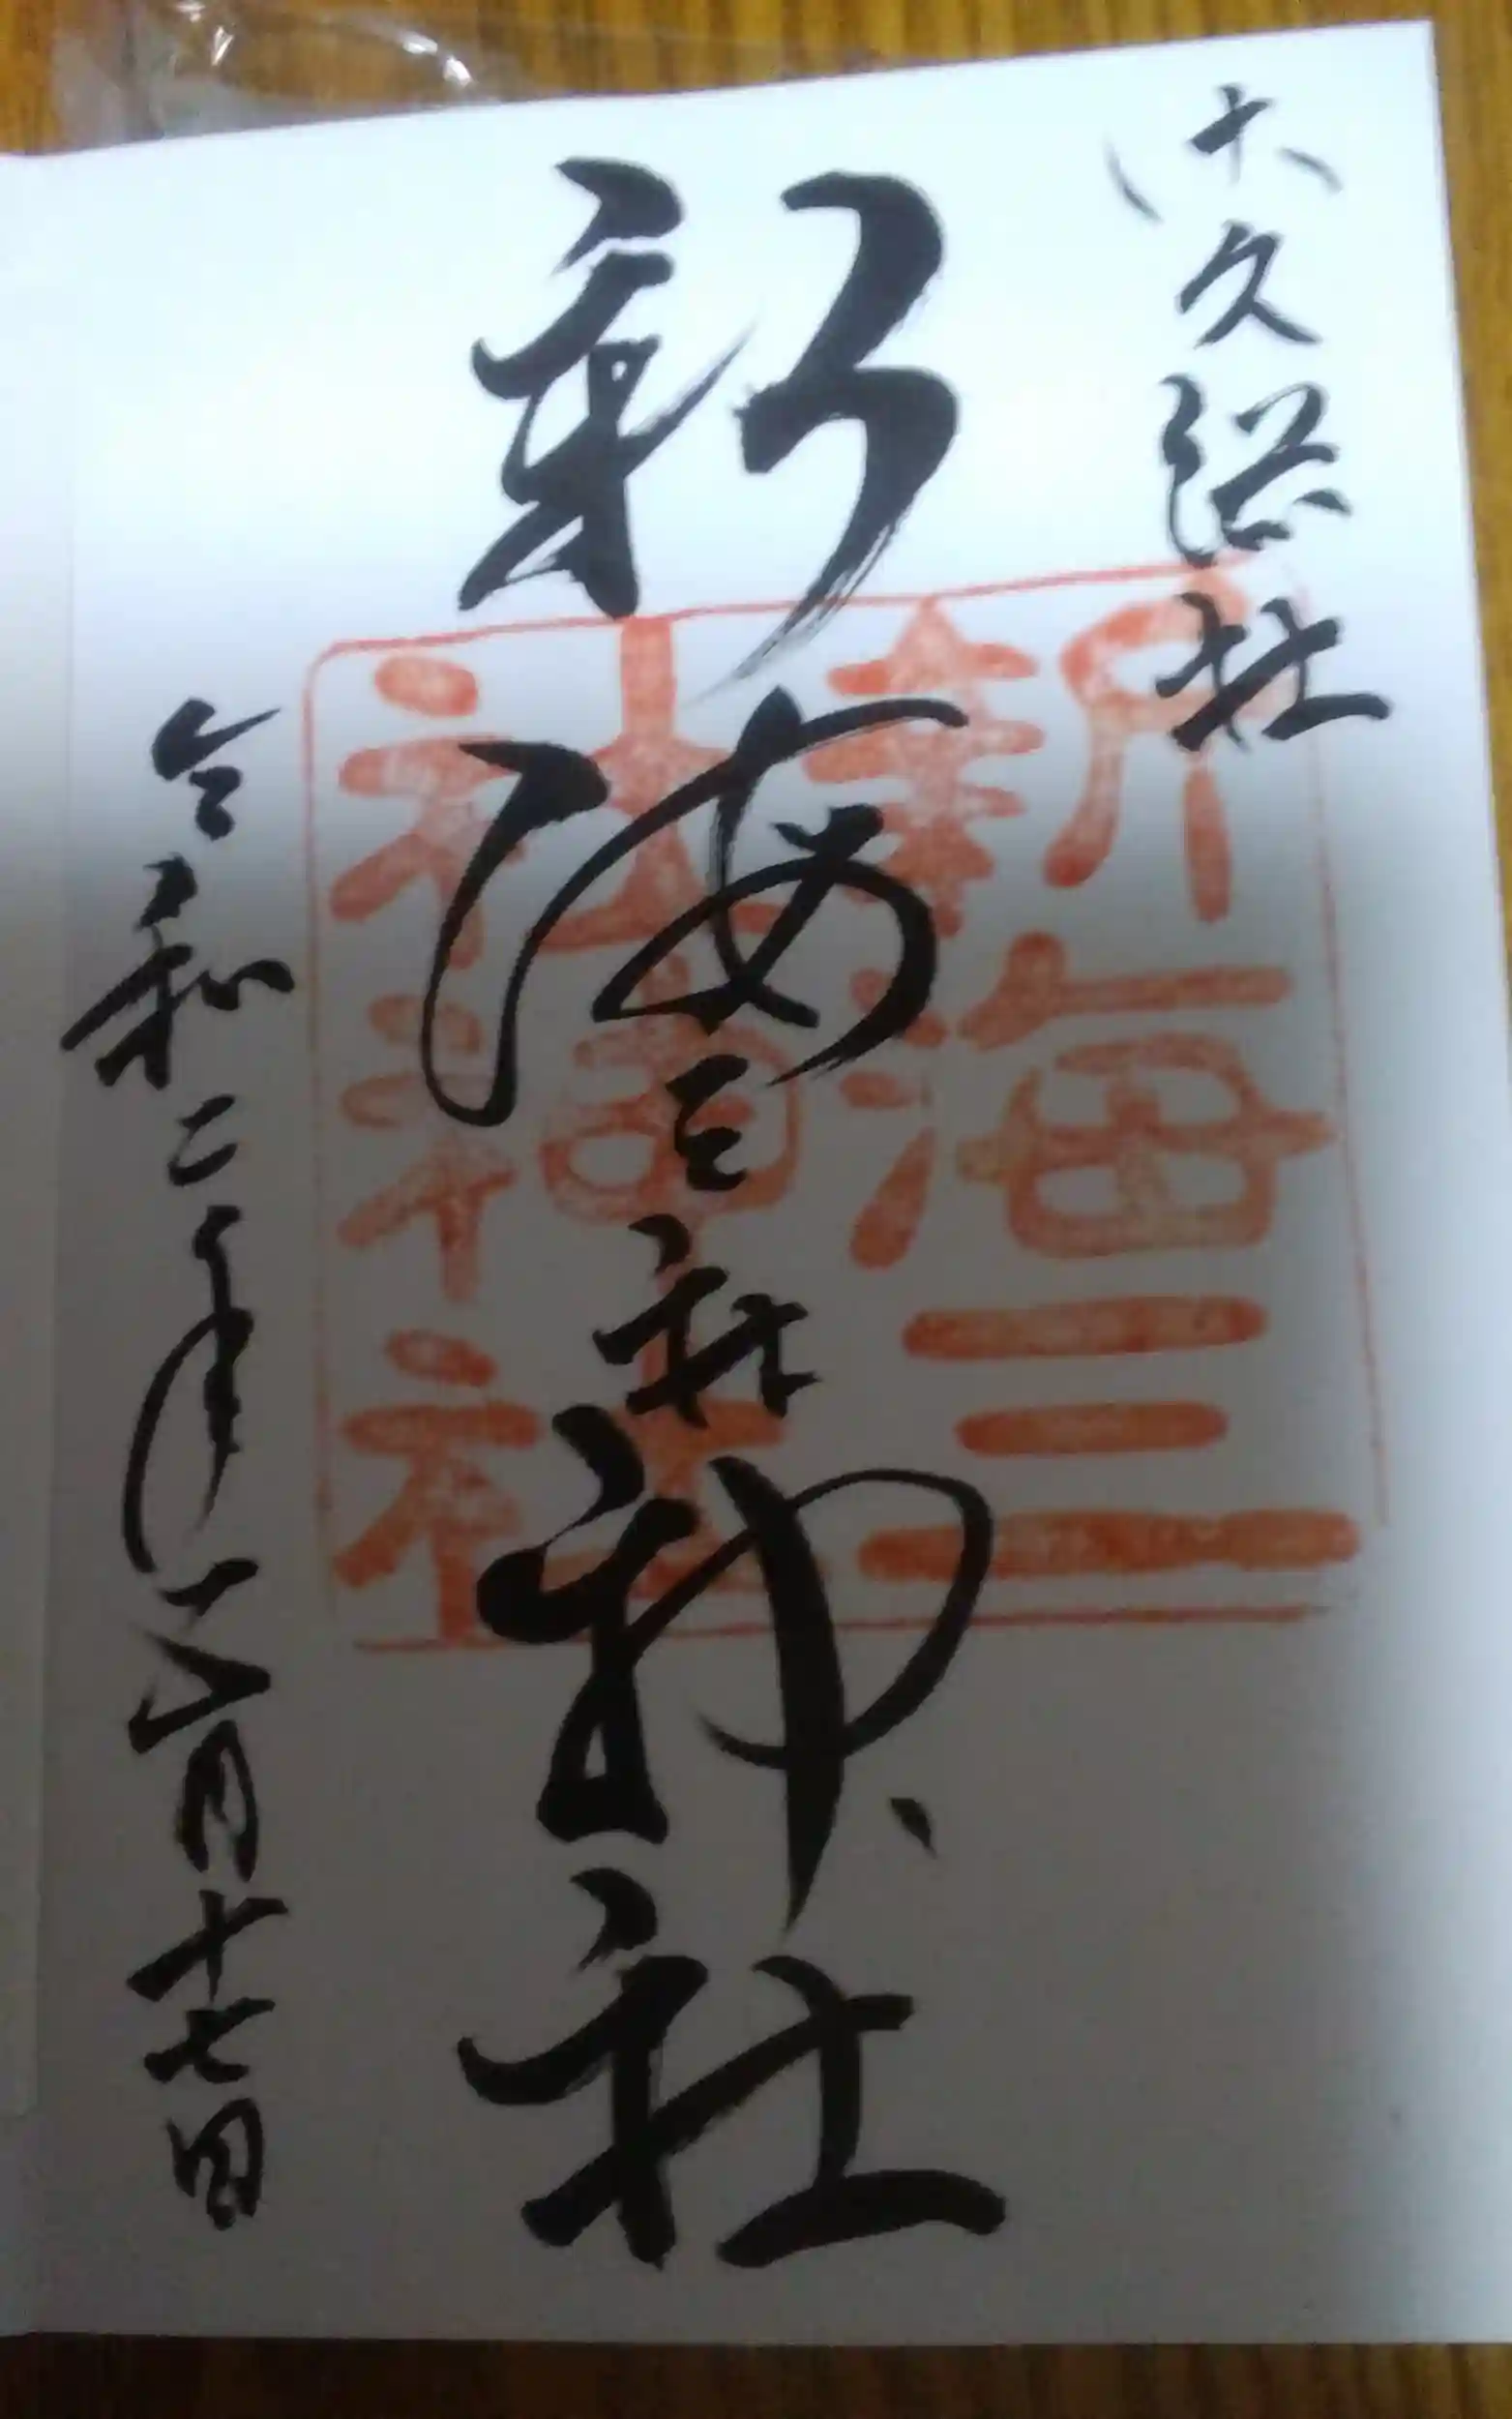 佐久総社
新海三社神社
新海三
社神社
令和二年六月十七日